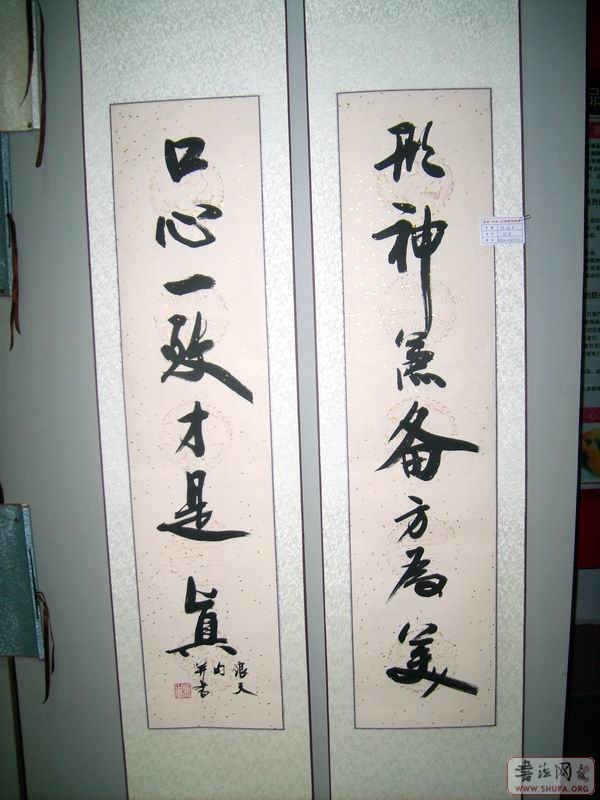 形神兼备方为美
口心一致才是真
浪天
句
并书
书法网
WWW.SHUFA.ORG